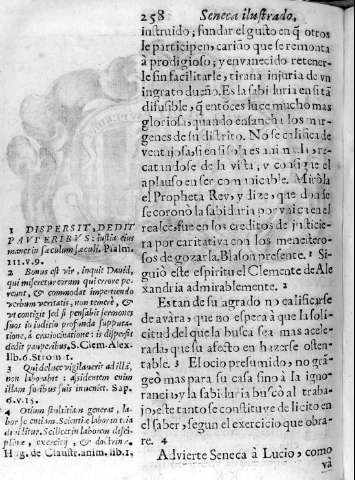 258 Seneca ilustrado,
instruido; fundar el gusto en q̃ otros
le participen, cariño que se remonta
a prodigioso; y envanecido retener-
le sin facilitarle, tirana injuria de vn
ingrato dueño. Es la sabiduria en si tã
difusible, q̃ entõces luce mucho mas
gloriosa, quando ensancha los mar-
genes de su distrito. No se califica de
ventajosa, si en si sola es animada, re-
catandose de la vista, y consigue el
aplauso en ser comunicable. Miròla
el Propheta Rey, y dize, que donde
se coronò la sabiduria por valiente el
realce, fue en los creditos de justicie-
ra por caritativa con los menestero-
sos de gozarla. Blason presente. 1 Si-
guiò este espiritu el Clemente de Ale
xandria admirablemente. 2
Es tan de su agrado no calificarse
de avàra, que no espera à que la soli-
citud del que la busca sea mas acele-
rada, que su afecto en hazerse osten-
table. 3 El ocio presumido, no gran-
geò mas para su casa sino à la igno-
rancia, y la sabiduria buscò al traba-
jo, este tanto se constituye de licito en
el saber, segun el exercicio que obra-
re. 4
Advierte Seneca à Lucio, como
và
1 DISPERSIT, DEDIT
PAUPERIBVS: iustitia eius
manet in sæculum sæculi. Psalm.
111.v.9.
2 Bonus est vir, inquit David,
qui miseretur eorum qui errore pe-
reunt, & commodat impertiendo
verbum veritatis, non temerè, &
vt contigit sed si pensabit sermones
suos in iudicio profunda supputa-
tione, & ratiocinatione: is dispersit
dedit pauperibus, S. Clem. Alex.
lib. 6. Strom. 1.
3 Qui de luce vigilaverit ad illã,
non laborabit: assidentem enim
illam foribus suis inveniet. Sap.
6.v.15.
4 Otium stultitiam generat, la-
bor scientiam. Scientiæ laborem tria
Scilicet in laborem disci-
plinæ, exercitij, & doctrinæ.
Hug. de Claustr. anim. lib. 1,